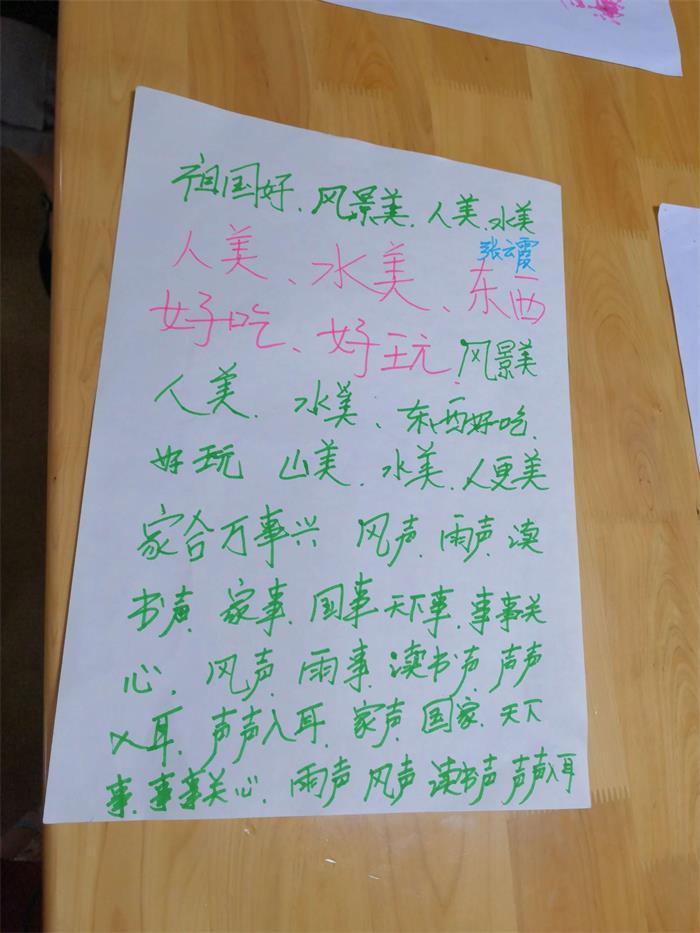 祖国好、风景美、人美、水美
张云霞
人美、水美、东西
好吃、好玩、风景美
人美、水美、东西好吃、
好玩 山美、水美、人更美
家合万事兴 风声、雨声、读
书声、家事、国事天下事、事事关
心、风声、雨事、读书声、声声
入耳、声声入耳、家声、国家、天下
事、事事关心、雨声 风声 读书声 声声入耳